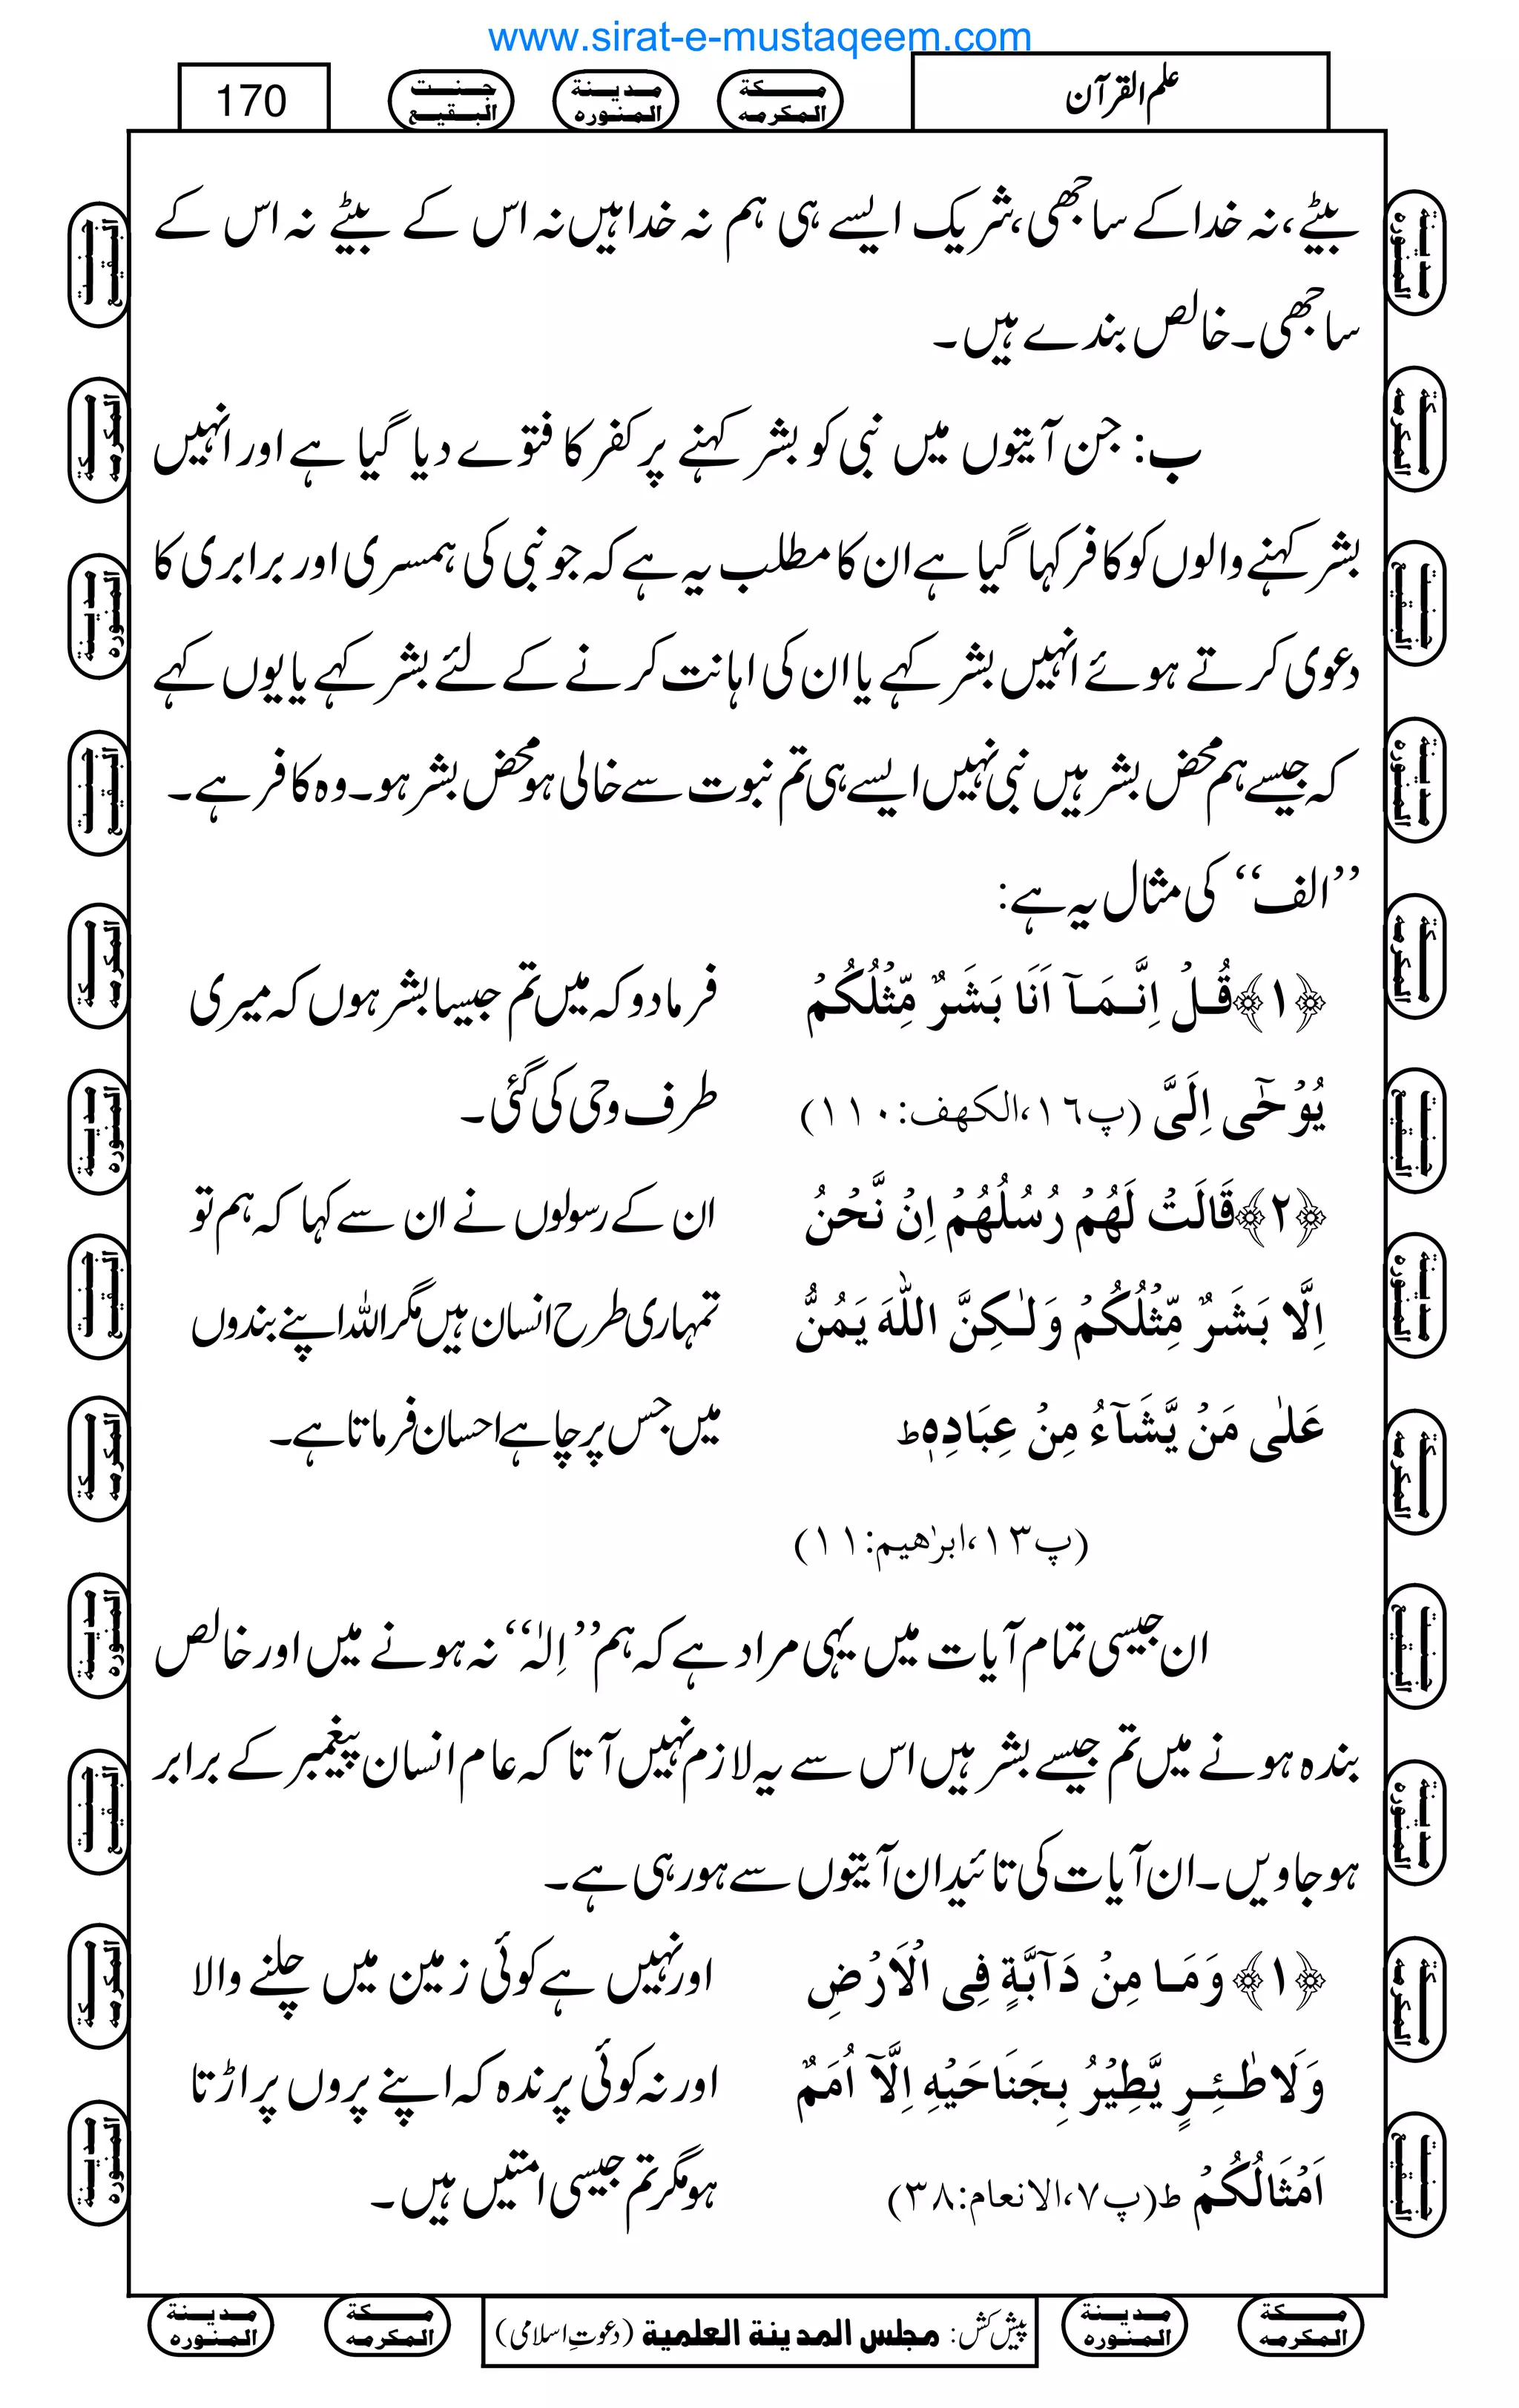 www.sirat-e-mustaqeem.com
علم القرآن
مكة المكرمه
مدينة المنوره
جنت البقيع
170
بیٹے،نہ خدا کے ساجھی، شریک ایسے ہی ہم نہ خدا ہیں نہ اس کے بیٹے نہ اس کے
ساجھی۔ خالص بندے ہیں۔
ب: جن آیتوں میں نبی کو بشر کہنے پر کفر کا فتوے دیا گیا ہے اور انہیں
بشر کہنے والوں کو کافر کہا گیا ہے ان کا مطلب یہ ہے کہ جو نبی کی ہمسری اور برابری کا
دعوی کرتے ہوئے انہیں بشر کہے یا ان کی اہانت کرنے کے لئے بشر کہے یا یوں کہے
کہ جیسے ہم محض بشر ہیں نبی نہیں ایسے ہی تم نبوت سے خالی ہو محض بشر ہو۔ وہ کافر ہے۔
’’الف‘‘ کی مثال یہ ہے:
﴿۱﴾قُلْ اِنَّمَآ اَنَا بَشَرٌ مِّثْلُكُمْ
يُوْحٰٓى اِلَىَّ (پ۱۶،الكهف:۱۱۰)
فرمادو کہ میں تم جیسا بشر ہوں کہ میری
طرف وحی کی گئی۔
﴿۲﴾قَالَتْ لَهُمْ رُسُلُهُمْ اِنْ نَّحْنُ
اِلَّا بَشَرٌ مِّثْلُكُمْ وَلٰكِنَّ اللّٰهَ يَمُنُّ
عَلٰى مَنْ يَّشَآءُ مِنْ عِبَادِهٖ ط
(پ۱۳،ابرٰهيم:۱۱)
ان کے رسولوں نے ان سے کہا کہ ہم تو
تمہاری طرح انسان ہیں مگر اللہ اپنے بندوں
میں جس پر چاہے احسان فرماتا ہے۔
ان جیسی تمام آیات میں یہی مراد ہے کہ ہم ’’اِلٰہ‘‘ نہ ہونے میں اور خالص
بندہ ہونے میں تم جیسے بشر ہیں اس سے یہ لازم نہیں آتا کہ عام انسان پیغمبر کے برابر
ہوجاویں۔ ان آیات کی تائید ان آیتوں سے ہورہی ہے۔
﴿۱﴾ وَمَا مِنْ دَآبَّةٍ فِى الْاَرْضِ
وَلَا طٰٓئِرٍ يَّطِيْرُ بِجَنَاحَيْهِ اِلَّآ اُمَمٌ
اَمْثَالُكُمْ ط (پ۷،الانعام:۳۸)
اور نہیں ہے کوئی زمین میں چلنے والا
اور نہ کوئی پرندہ کہ اپنے پروں پر اڑتا
ہو مگر تم جیسی امتیں ہیں۔
پیش کش: مجلس المدينة العلمية (دعوتِ اسلامی)